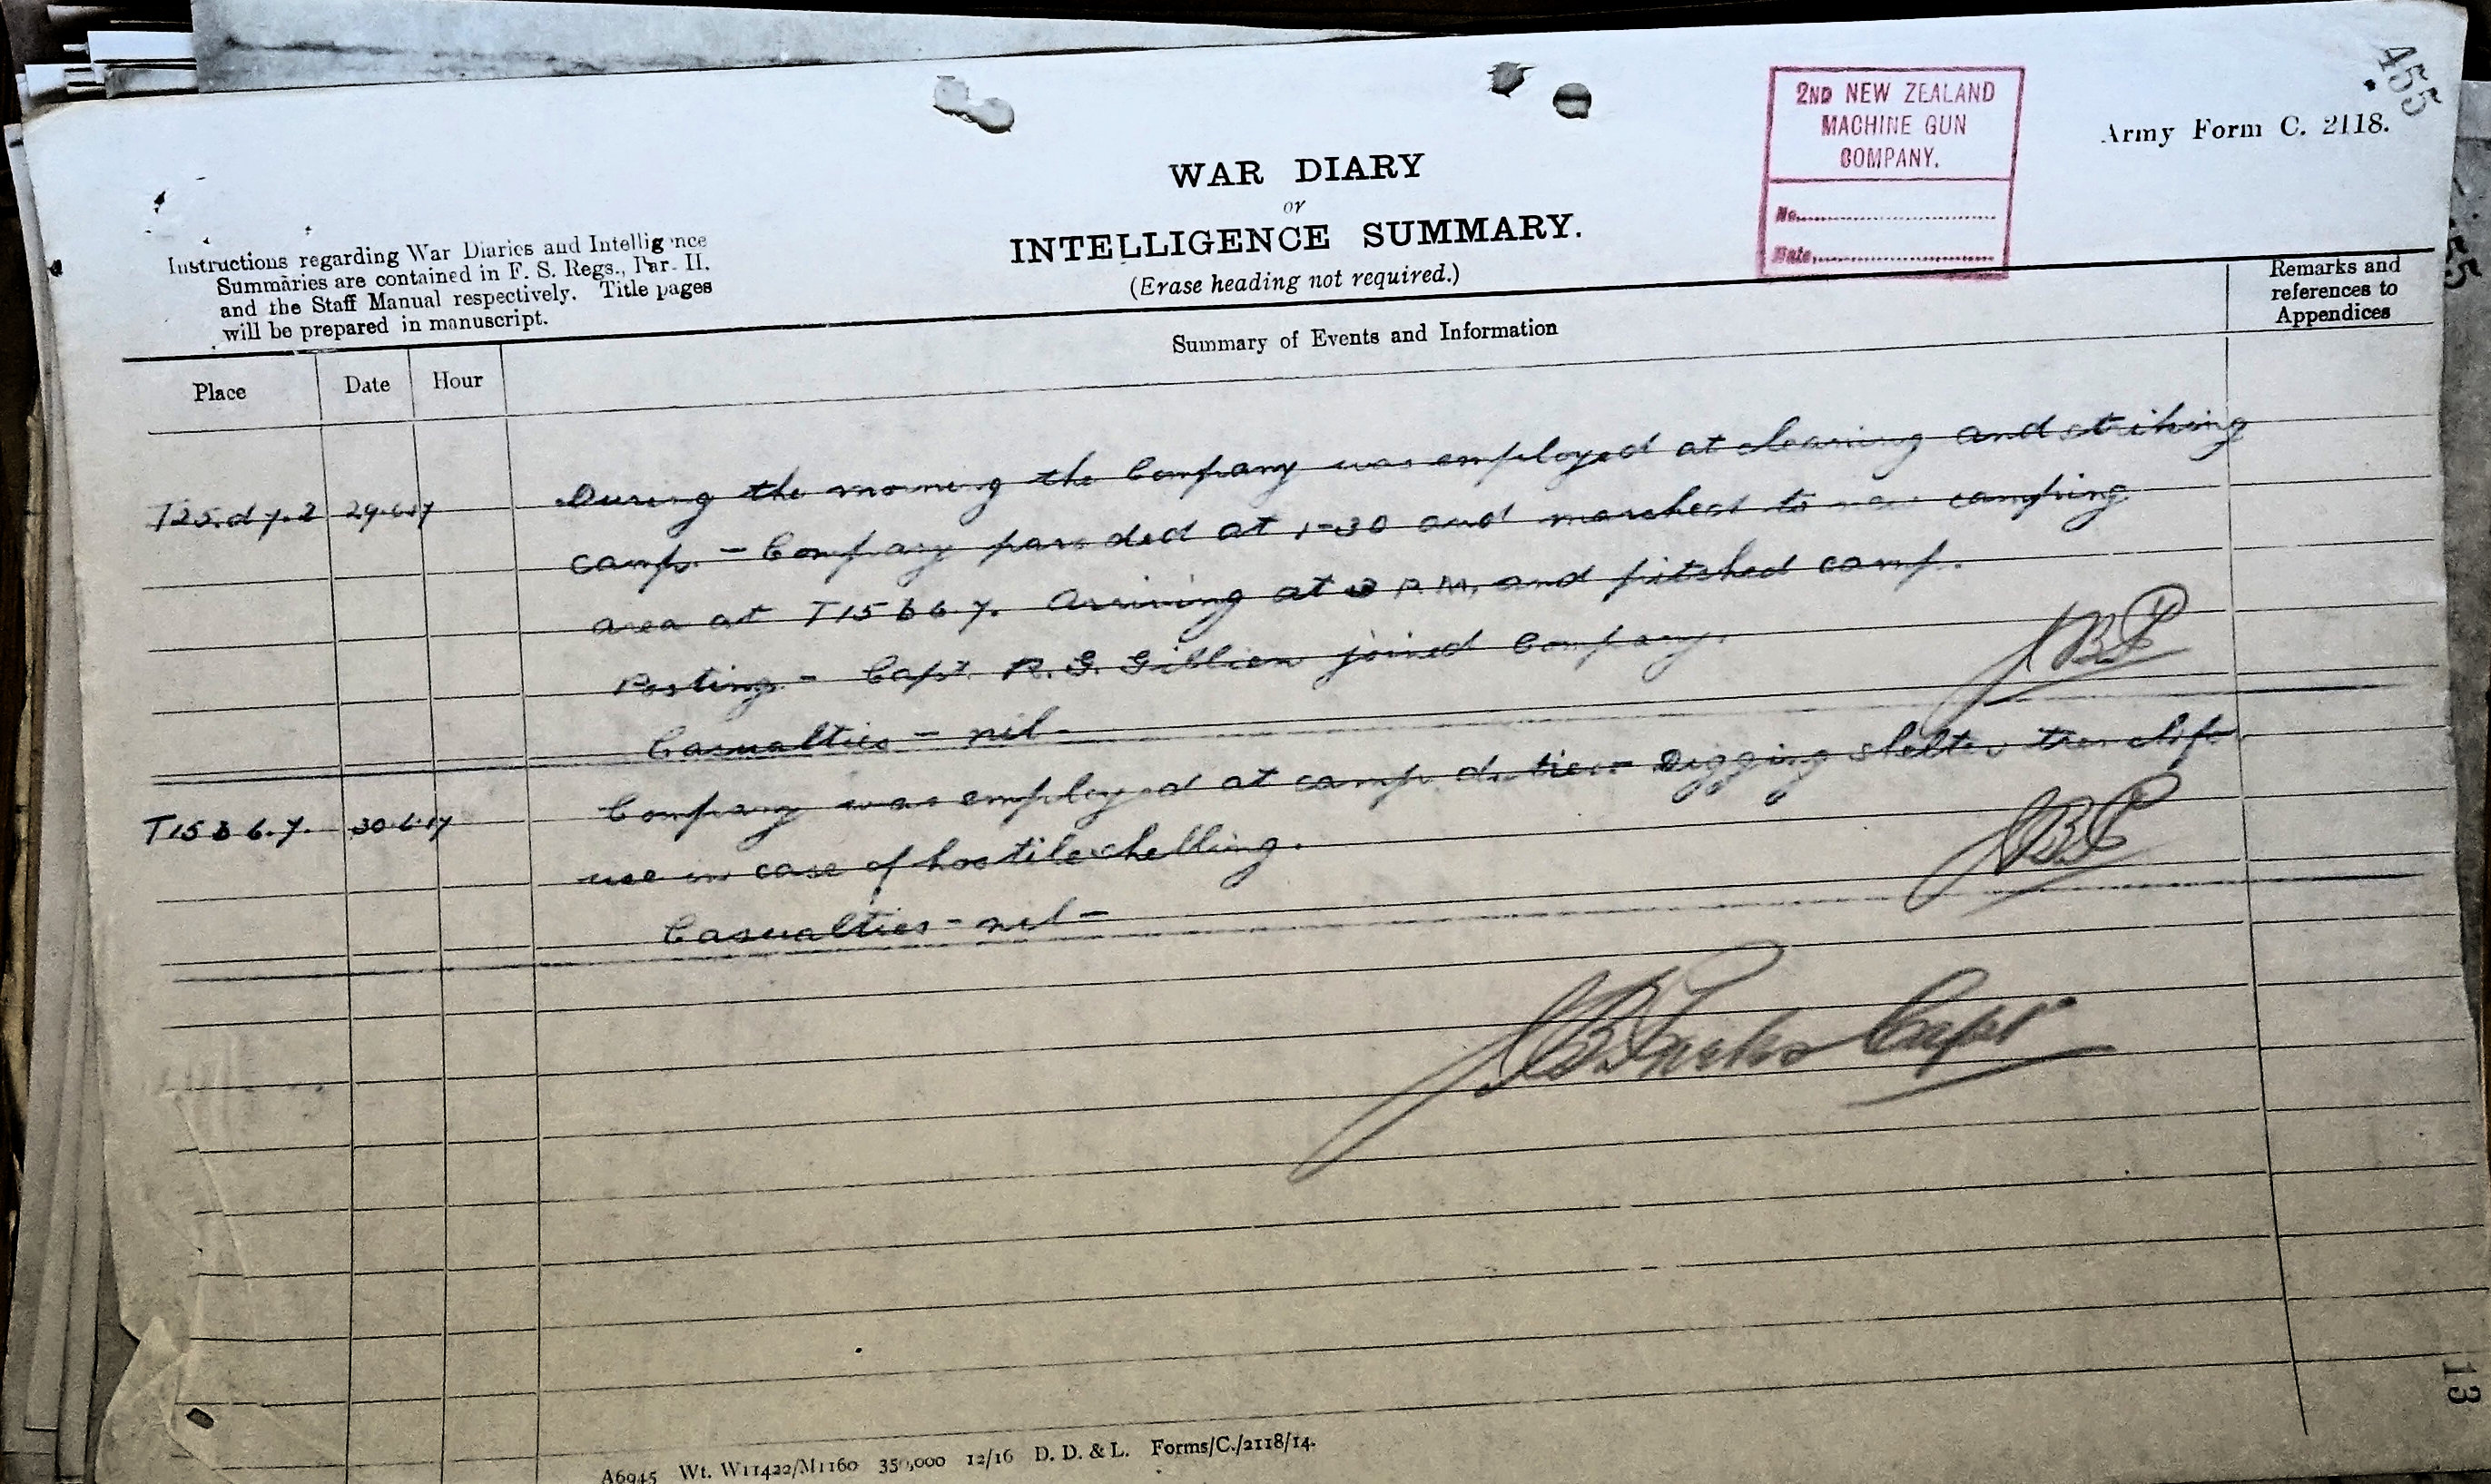 455
2ND NEW ZEALAND
MACHINE GUN
COMPANY.
No.
Date
Army Form C. 2118.
WAR DIARY
or
INTELLIGENCE SUMMARY.
(Erase heading not required.)
Instructions regarding War Diaries and Intelligence
Summaries are contained in F. S. Regs., Part II.
and the Staff Manual respectively. Title pages
will be prepared in manuscript.
Remarks and
references to
Appendices
Summary of Events and Information
Place Date Hour
T25.d 7.2 29.6.17 During the morning the Company was employed at cleaning and striking
camp. - Company paraded at 1-30 and marched to new camping
area at T15 b 6.7. arriving at 3 P.M. and pitched camp.
Posting - Capt. R.G. joined Company.
Casualties - nil -
JBP
T15 b 6.7. 30.6.17 Company was employed at camp duties - Digging shelter trench for
use in case of hostile shelling.
Casualties - nil -
JBP
Capt
13
A6945 Wt. W11422/M1160 350,000 12/16 D. D. & L. Forms/C./2118/14.